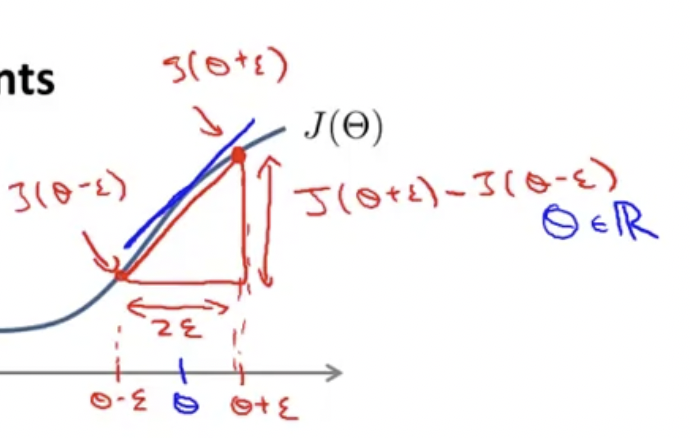 nts
J(θ+ε)
J(Θ)
J(θ-ε)
J(θ+ε)-J(θ-ε)
θ ∈ ℝ
2ε
θ-ε θ θ+ε